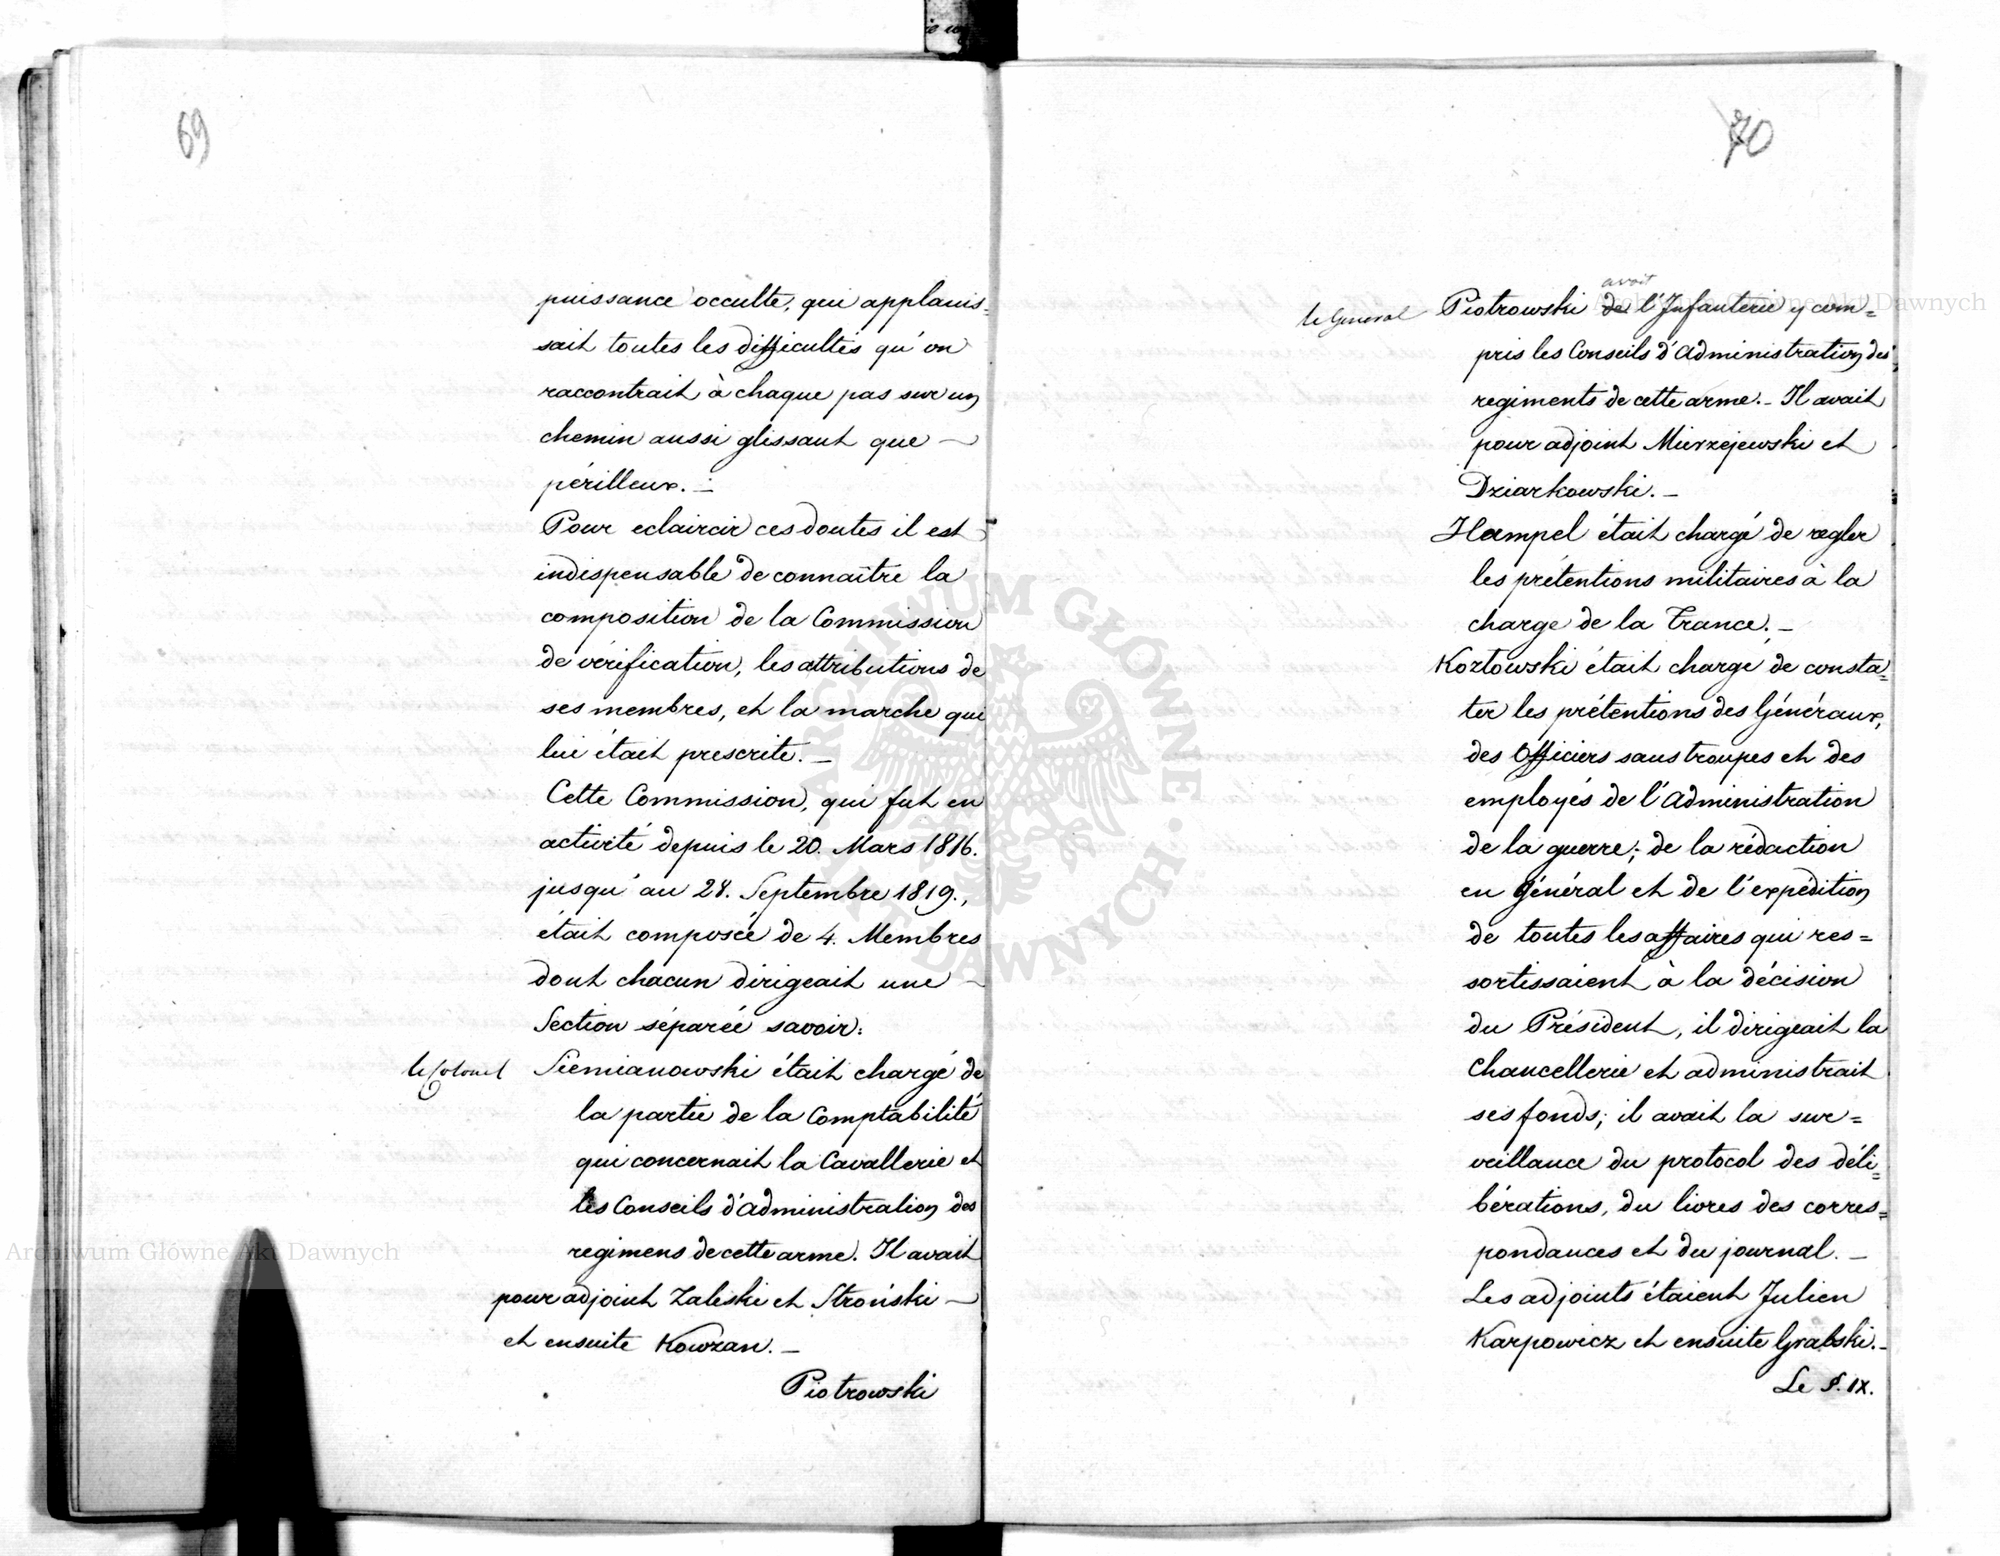 69
puissance occulte, qui applanis-
sait toutes les difficultés qu'on
raccontrait à chaque pas sur un
chemin aussi glissant que
périlleux.
Pour eclaircir ces doutes il est
indispensable de connaître la
composition de la Commission
de vérification, les attributions de
ses membres, et la marche qui
lui était prescrite.
Cette Commission, qui fut en
activité depuis le 20. Mars 1816.
jusqu'au 28. Septembre 1819.,
était composée de 4. Membres
dont chacun dirigeait une
Section séparée savoir:
le Colonel Siemianowski était chargé de
la partie de la Comptabilité
qui concernait la Cavallerie et
les Conseils d'administration des
regimens de cette arme. Il avait
pour adjoint Zaleski et Stroński
et ensuite Kowzan.
Piotrowski
70
avait
le General Piotrowski de l'Infanterie y com=
pris les Conseils d'Administration des
regiments de cette arme. Il avait
pour adjoint Mierzejewski et
Dziarkowski.
Hampel était chargé de regler
les prétentions militaires à la
charge de la France.
Kozłowski était chargé de consta=
ter les prétentions des Généraux,
des Officiers sans troupes et des
employés de l'Administration
de la guerre; de la rédaction
en général et de l'expédition
de toutes les affaires qui res=
sortissaient à la décision
du Président, il dirigeait la
Chancellerie et administrait
ses fonds; il avait la sur=
veillance du protocol des déli=
bérations, du livres des corres=
pondances et du journal.
Les adjoints étaient Julien
Karpowicz et ensuite Grabski.
Le §. IX.
Archiwum Główne Akt Dawnych
Archiwum Główne Akt Dawnych
ARCHIWUM GŁÓWNE AKT DAWNYCH